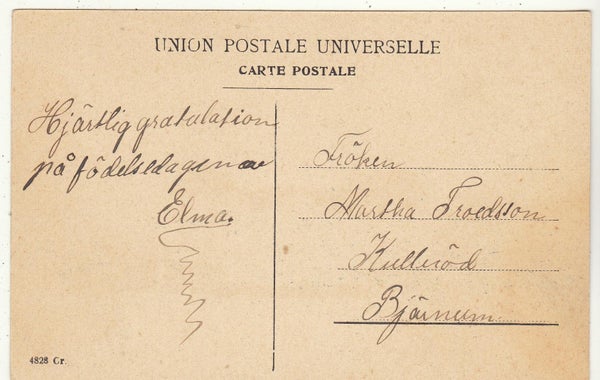 UNION POSTALE UNIVERSELLE
CARTE POSTALE
Hjärtlig gratulation
på födelsedagen av
Elma.
Fröken
Martha Troedsson
Kulleröd
Bjärnum.
4828 Gr.